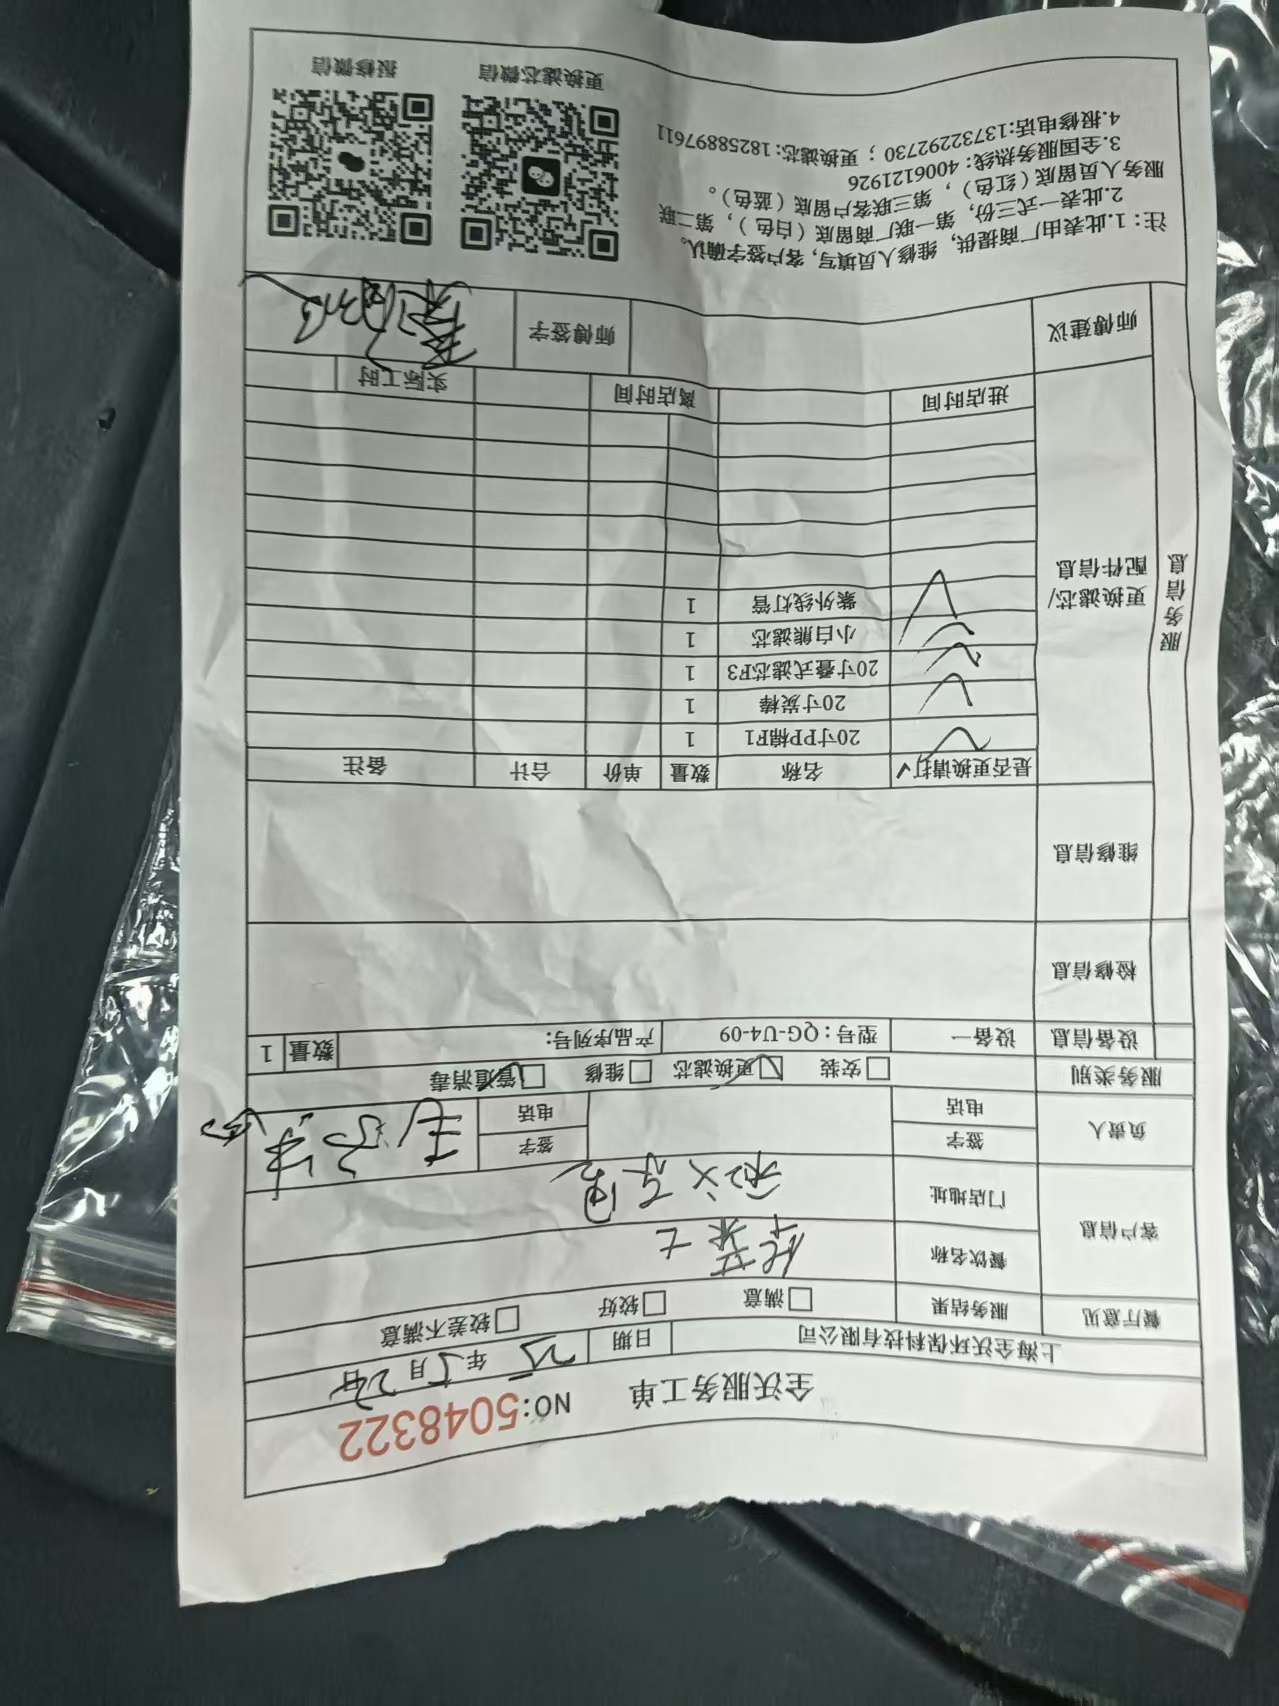 全沃服务工单 NO:5048322
上海全沃环保科技有限公司 日期 25年5月24日
餐厅意见 服务结果 满意 较好 较差不满意
客户信息 餐饮名称
门店地址
负责人 签字 签字
电话 电话
服务类别 安装 更换滤芯 维修 管道消毒
设备信息 设备一 型号：QG-U4-09 产品序列号： 数量 1
检修信息
维修信息
服务信息
更换滤芯/配件信息
是否更换请打✓ 名称 数量 单价 合计 备注
✓ 20寸PP棉F1 1
✓ 20寸炭棒 1
✓ 20寸叠式滤芯F3 1
✓ 小白熊滤芯 1
✓ 紫外线灯管 1
进店时间 离店时间 实际工时
师傅建议 师傅签字
注：1.此表由厂商提供，维修人员填写，客户签字确认。
2.此表一式三份，第一联厂商留底（白色），第二联
服务人员留底（红色），第三联客户留底（蓝色）。
3.全国服务热线：4006121926
4.报修电话:13732292730；更换滤芯:18258897611
更换滤芯微信 报修微信